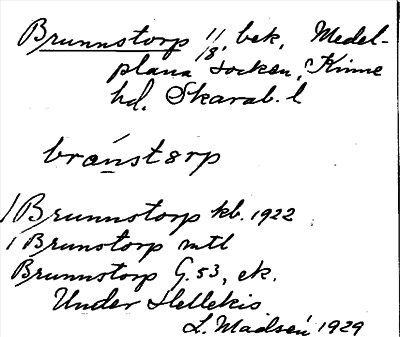 Brunnstorp 11/8, bek, Medel-
plana socken, Kinne
hd. Skarab. l
bránstɜrp
1 Brunnstorp kb. 1922
1 Brunstorp mtl
Brunnstorp G. 53, ek.
Under Hellekis
L. Madsén 1929